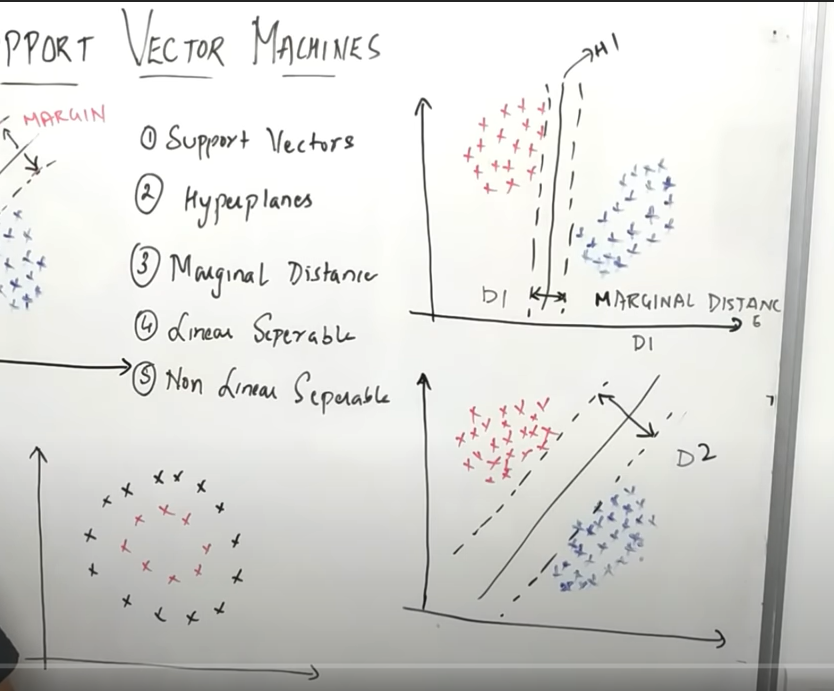 PPORT VECTOR MACHINES
MARGIN
① Support Vectors
② Hyperplanes
③ Marginal Distance
④ Linear Seperable
⑤ Non Linear Seperable
H1
D1
MARGINAL DISTANC
E
D1
D2